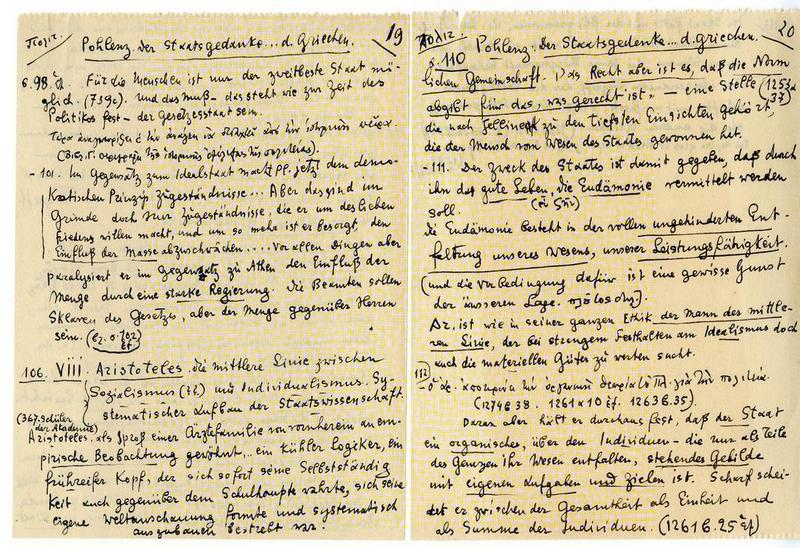 Πολιτ. Pohlenz. Der Staatsgedanke... d. Griechen. 19
S. 98. Für die Menschen ist nur der zweitbeste Staat mö-
glich. (739e). Und das muß - das steht wie zur Zeit des
Politikos fest - der Gesetzesstaat sein.
- 101. Im Gegensatz zum Idealstaat macht Pl. jetzt dem demo-
kratischen Prinzip Zugeständnisse... Aber das sind im
Grunde doch nur Zugeständnisse, die er um des lieben
Friedens willen macht, und um so mehr ist er besorgt, den
Einfluß der Masse abzuschwächen.... Vor allen Dingen aber
paralysiert er im Gegensatz zu Athen den Einfluß der
Menge durch eine starke Regierung. Die Beamten sollen
Sklaven des Gesetzes, aber der Menge gegenüber Herren
sein.
106. VIII. Aristoteles. die mittlere Linie zwischen
Sozialismus und Individualismus. Sy-
stematischer Aufbau der Staatswissenschaft.
(367. Schüler
der Akademie)
Aristoteles. als Sproß einer Ärztefamilie von vornherein an em-
pirische Beobachtung gewöhnt... ein kühler Logiker, ein
frühreifer Kopf, der sich sofort seine Selbstständig
keit auch gegenüber dem Schulhaupte wahrte, sich seine
eigene Weltanschauung formte und systematisch
auszubauen bestrebt war.
Πολιτ. Pohlenz. Der Staatsgedenke... d. Griechen. 20
S. 110
lichen Gemeinschaft. Das Recht aber ist es, daß die Norm
abgibt für das, was gerecht ist. - eine Stelle (1253a
37)
die nach Jellinek zu den tiefsten Einsichten gehört,
die der Mensch vom Wesen des Staats gewonnen hat.
- 111. Der Zweck des Staates ist damit gegeben, daß durch
ihn das gute Leben, die Eudämonie vermittelt werden
soll. (εὖ ζῆν)
Die Eudämonie besteht in der vollen ungehinderten Ent-
faltung unseres Wesens, unserer Leistungsfähigkeit.
(und die Vorbedingung dafür ist eine gewisse Gunst
der äusseren Lage.
Ar. ist wie in seiner ganzen Ethik der Mann des mittle-
ren Linie, der bei strengem Festhalten am Idealismus doch
auch die materiellen Güter zu werten sucht.
112
(1274b 38. 1261a 10 1263b.35).
Daran aber hält er durchaus fest, daß der Staat
ein organisches, über den Individuen - die nur als Teile
des Ganzen ihr Wesen entfalten, stehendes Gebilde
mit eigenen Aufgaben und Zielen ist. Scharf schei-
det er zwischen der Gesamtheit als Einheit und
als Summe der Individuen. (1261b.25